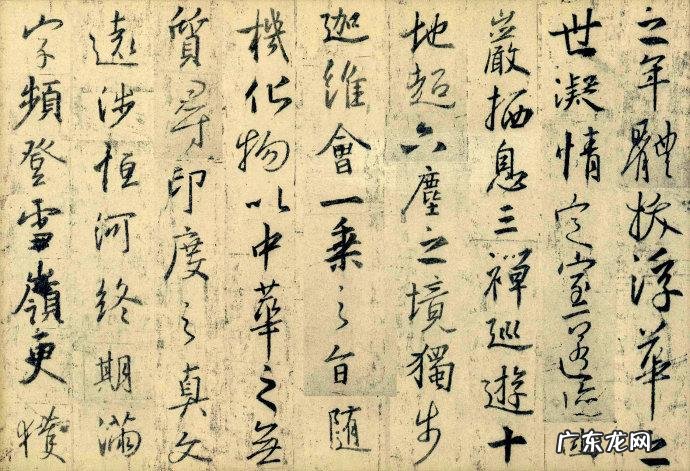 之年體拔浮華之
世凝情定室匿迹幽
巖栖息三禪巡遊十
地超六塵之境獨步
迦維會一乘之旨随
機化物以中華之無
質尋印度之真文
遠涉恒河終期滿
字頻登雪嶺更獲
广东龙网